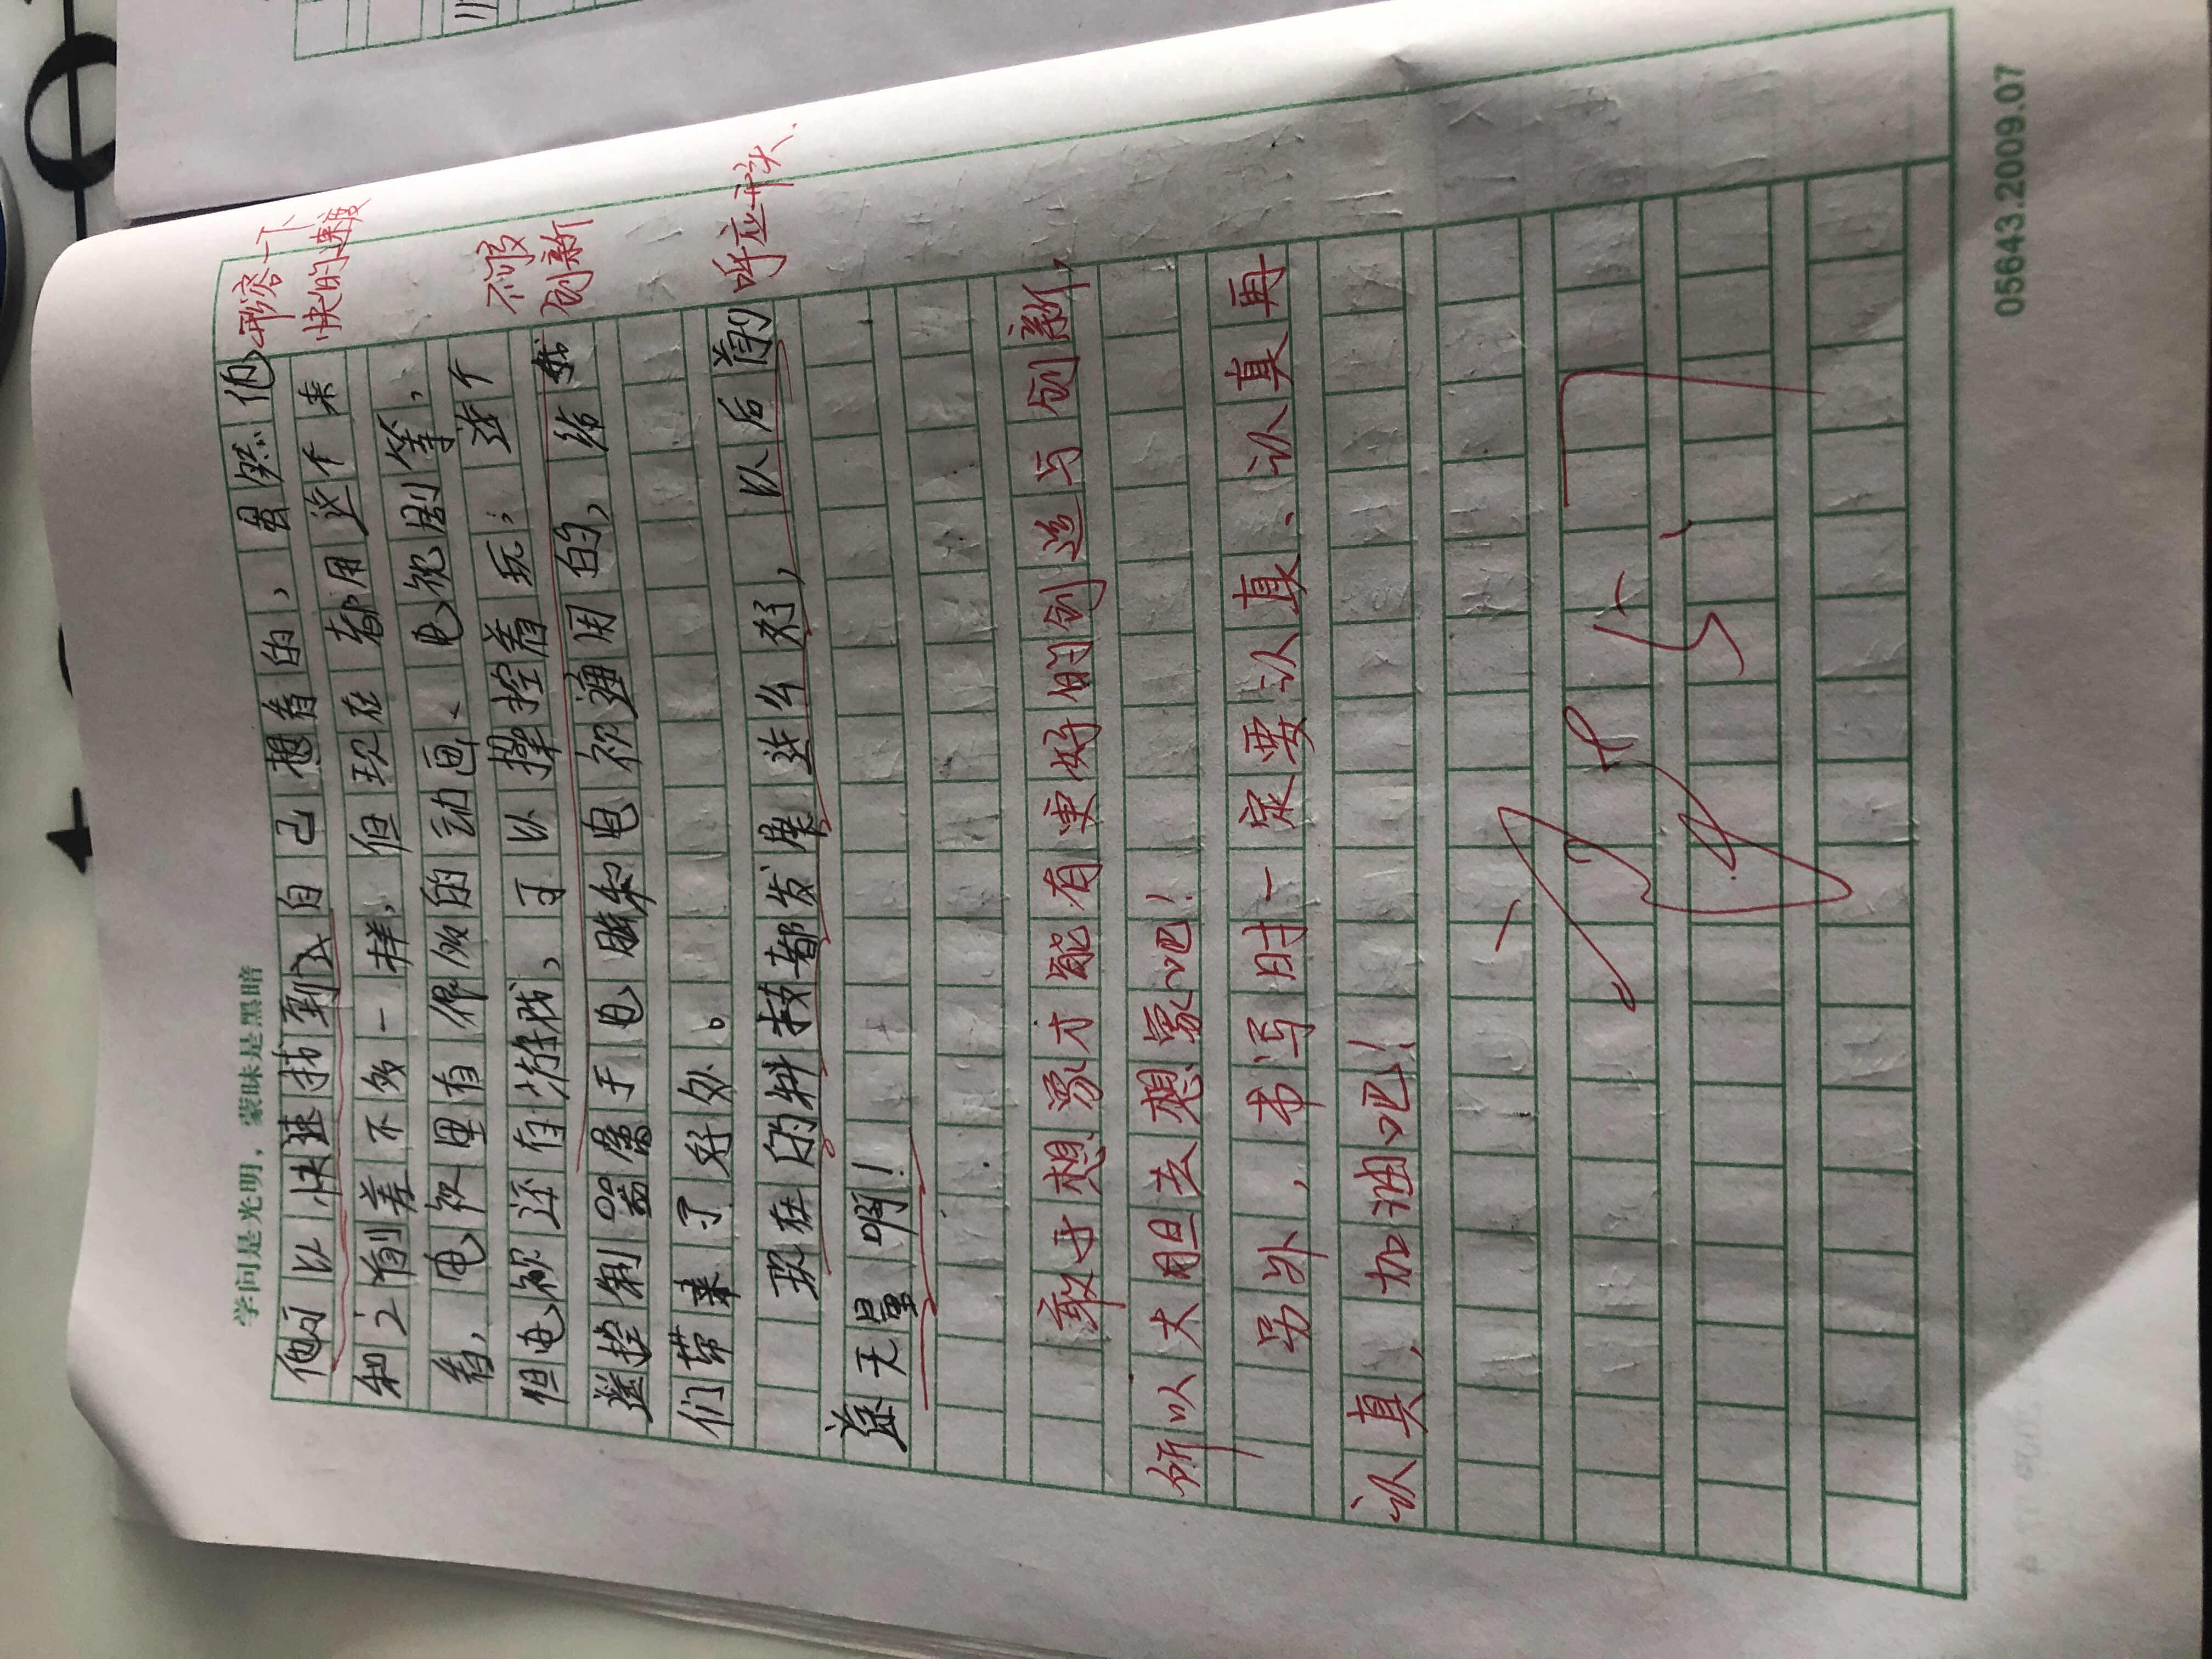 学问是光明，蒙昧是黑暗
他可以快速找到自己想看的，虽然他
形容一下
快的速度
和之前差不多一样，但现在都用这个来
看，电视里有很多的动画、电视剧等，
但电视还有游戏，可以操控着玩；这个
不够
创新
遥控制器属于电脑和电视通用的，给我
们带来了好处。
现在的科技都发展这么好，以后前
呼应开头.
景无量啊！
敢于想象才能有更好的创造与创新，
所以大胆去想象吧！
另外，书写时一定要认真、认真再
认真，加油吧！
05643.2009.07